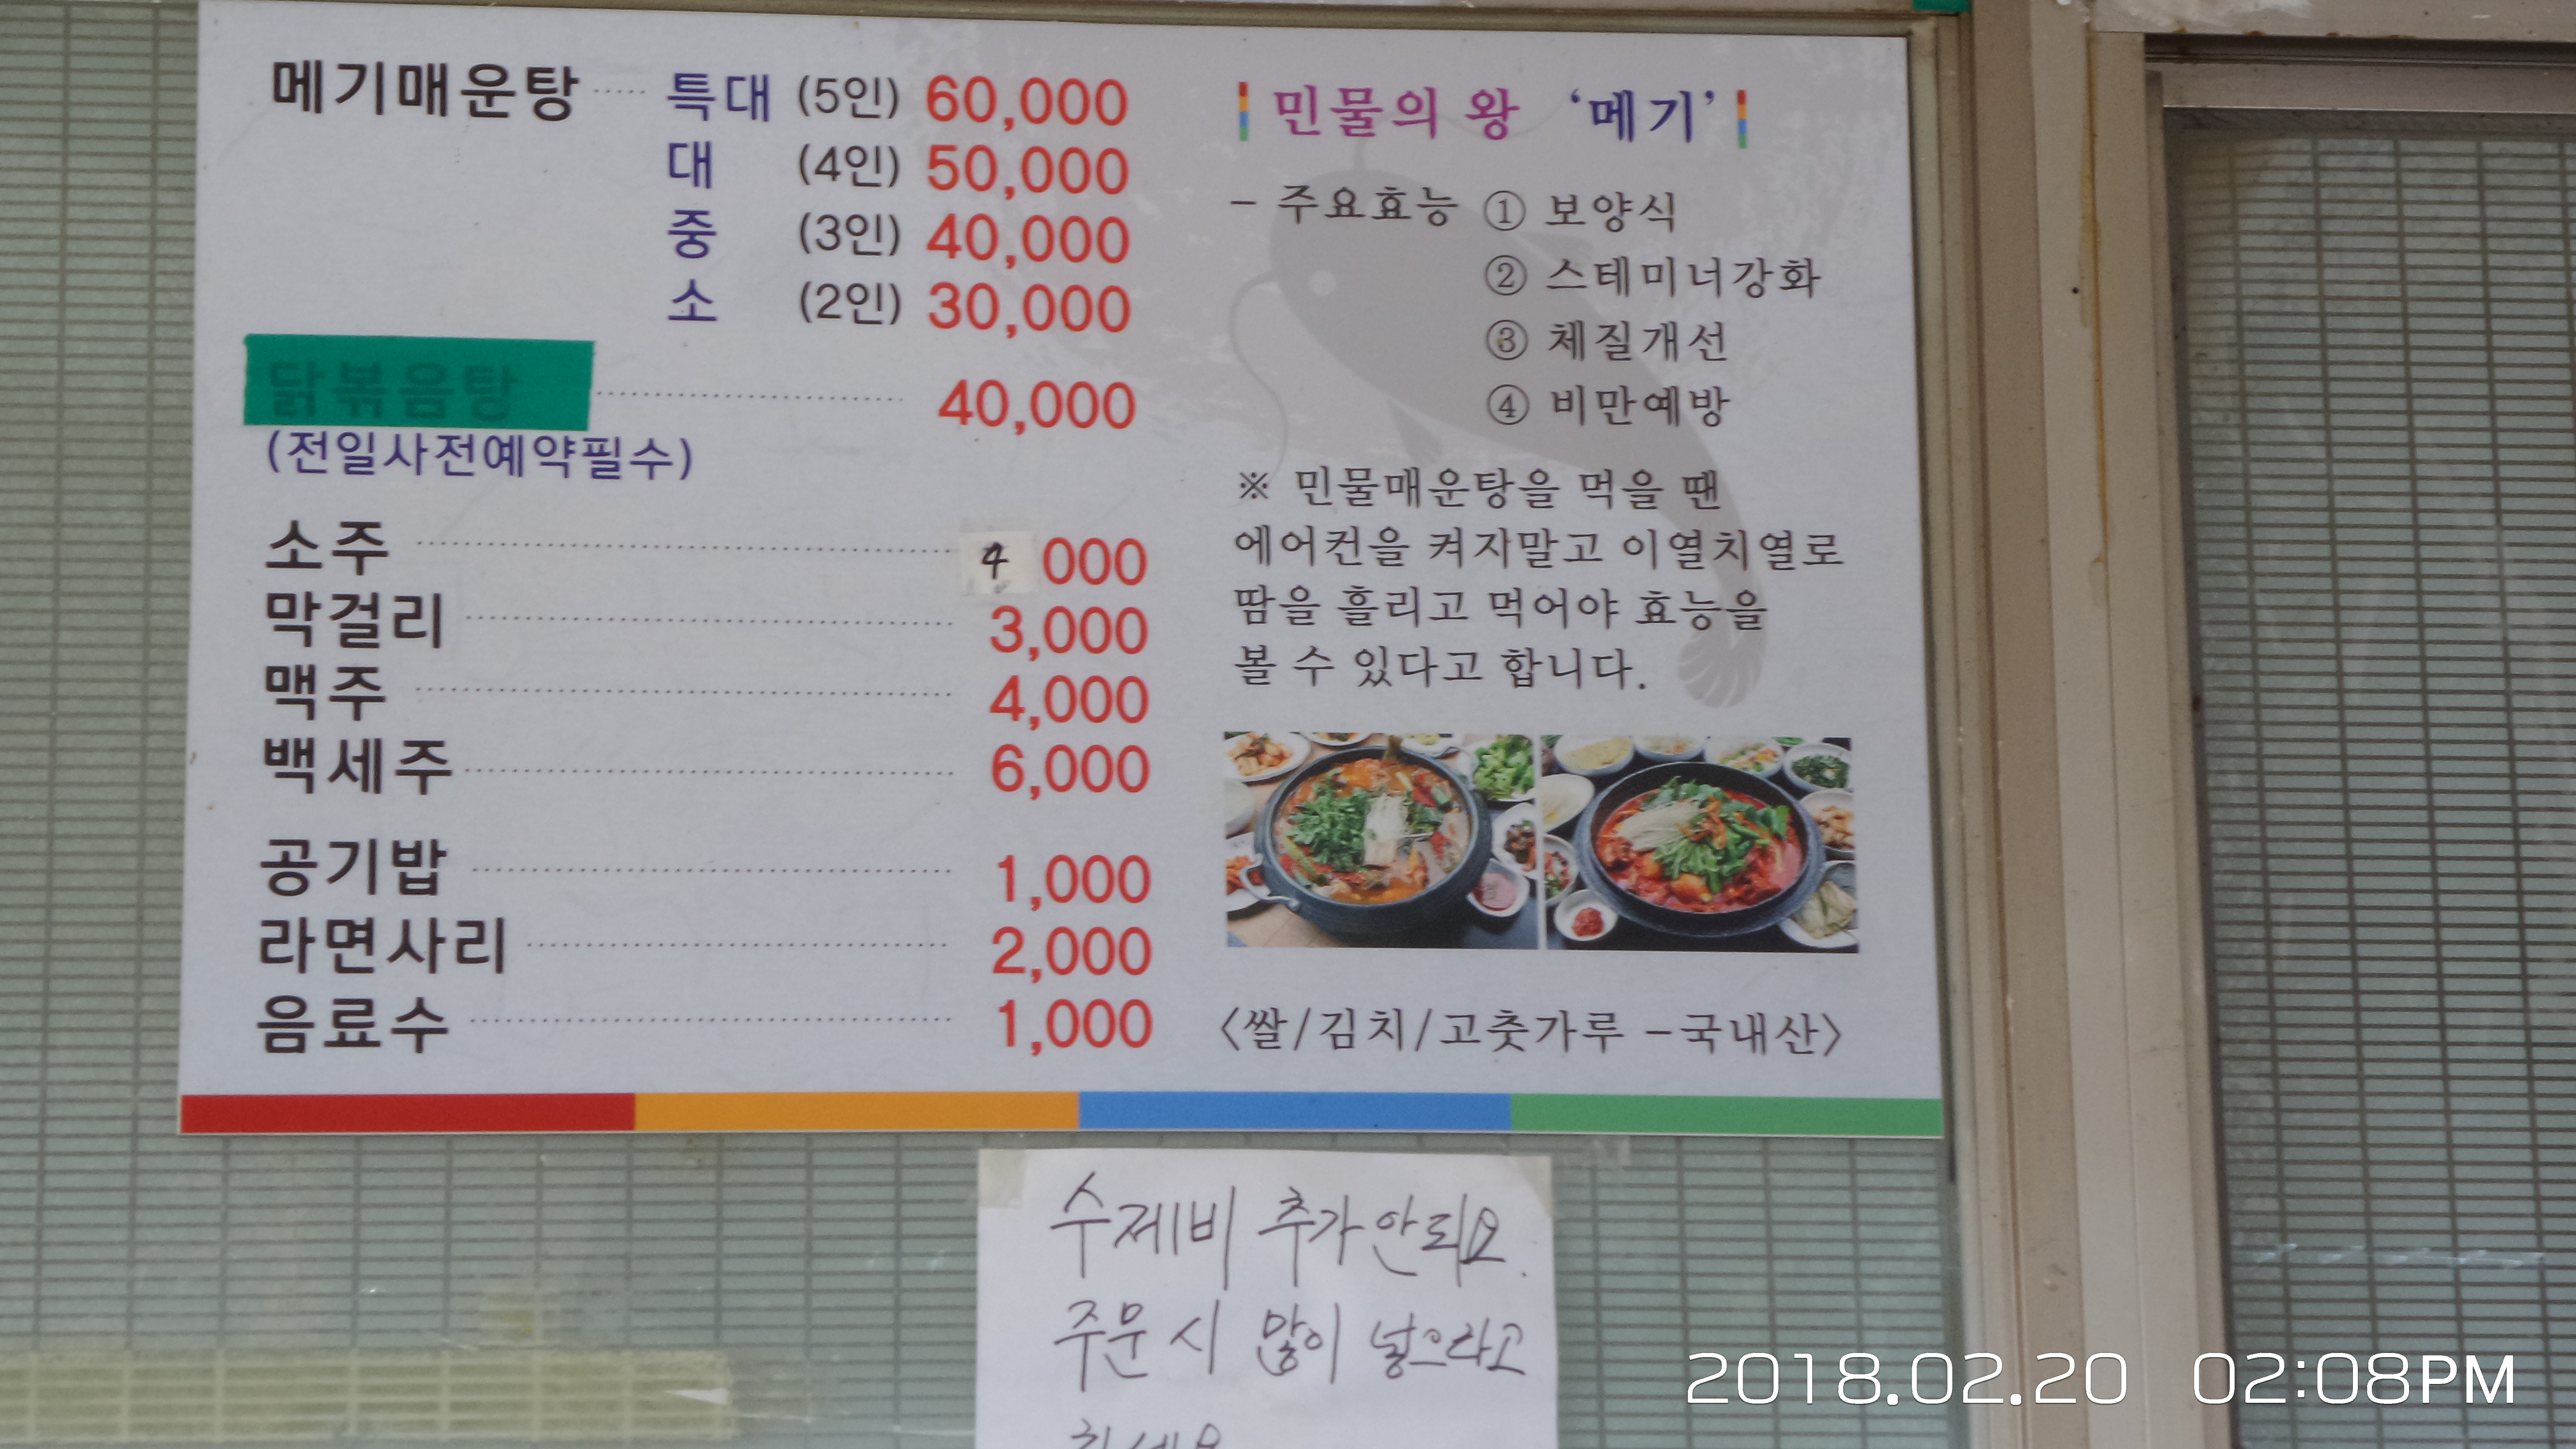 메기매운탕 ····· 특대 (5인) 60,000
대 (4인) 50,000
중 (3인) 40,000
소 (2인) 30,000
닭볶음탕 ····· 40,000
(전일사전예약필수)
소주 ····· 4 000
막걸리 ····· 3,000
맥주 ····· 4,000
백세주 ····· 6,000
공기밥 ····· 1,000
라면사리 ····· 2,000
음료수 ····· 1,000
민물의 왕 ‘메기’
- 주요효능 ① 보양식
② 스테미너강화
③ 체질개선
④ 비만예방
※ 민물매운탕을 먹을 땐
에어컨을 켜지말고 이열치열로
땀을 흘리고 먹어야 효능을
볼 수 있다고 합니다.
<쌀/김치/고춧가루 -국내산>
수제비 추가안되요.
주문시 많이 넣으라고
2018.02.20 02:08PM